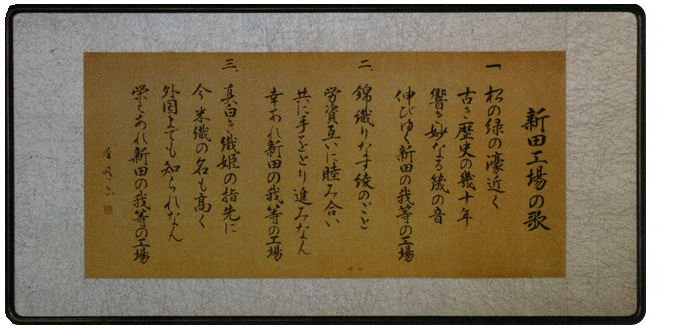 新田工場の歌
一、松の緑の濠近く
古き歴史の幾十年
響き妙なる筬の音
伸びゆく新田の我等の工場
二、錦織りなす綾のごと
労資互いに睦み合い
共に手をとり進みなん
幸あれ新田の我等の工場
三、真白き織姫の指先に
今米織の名も高く
外国までも知られなん
栄えあれ新田の我等の工場